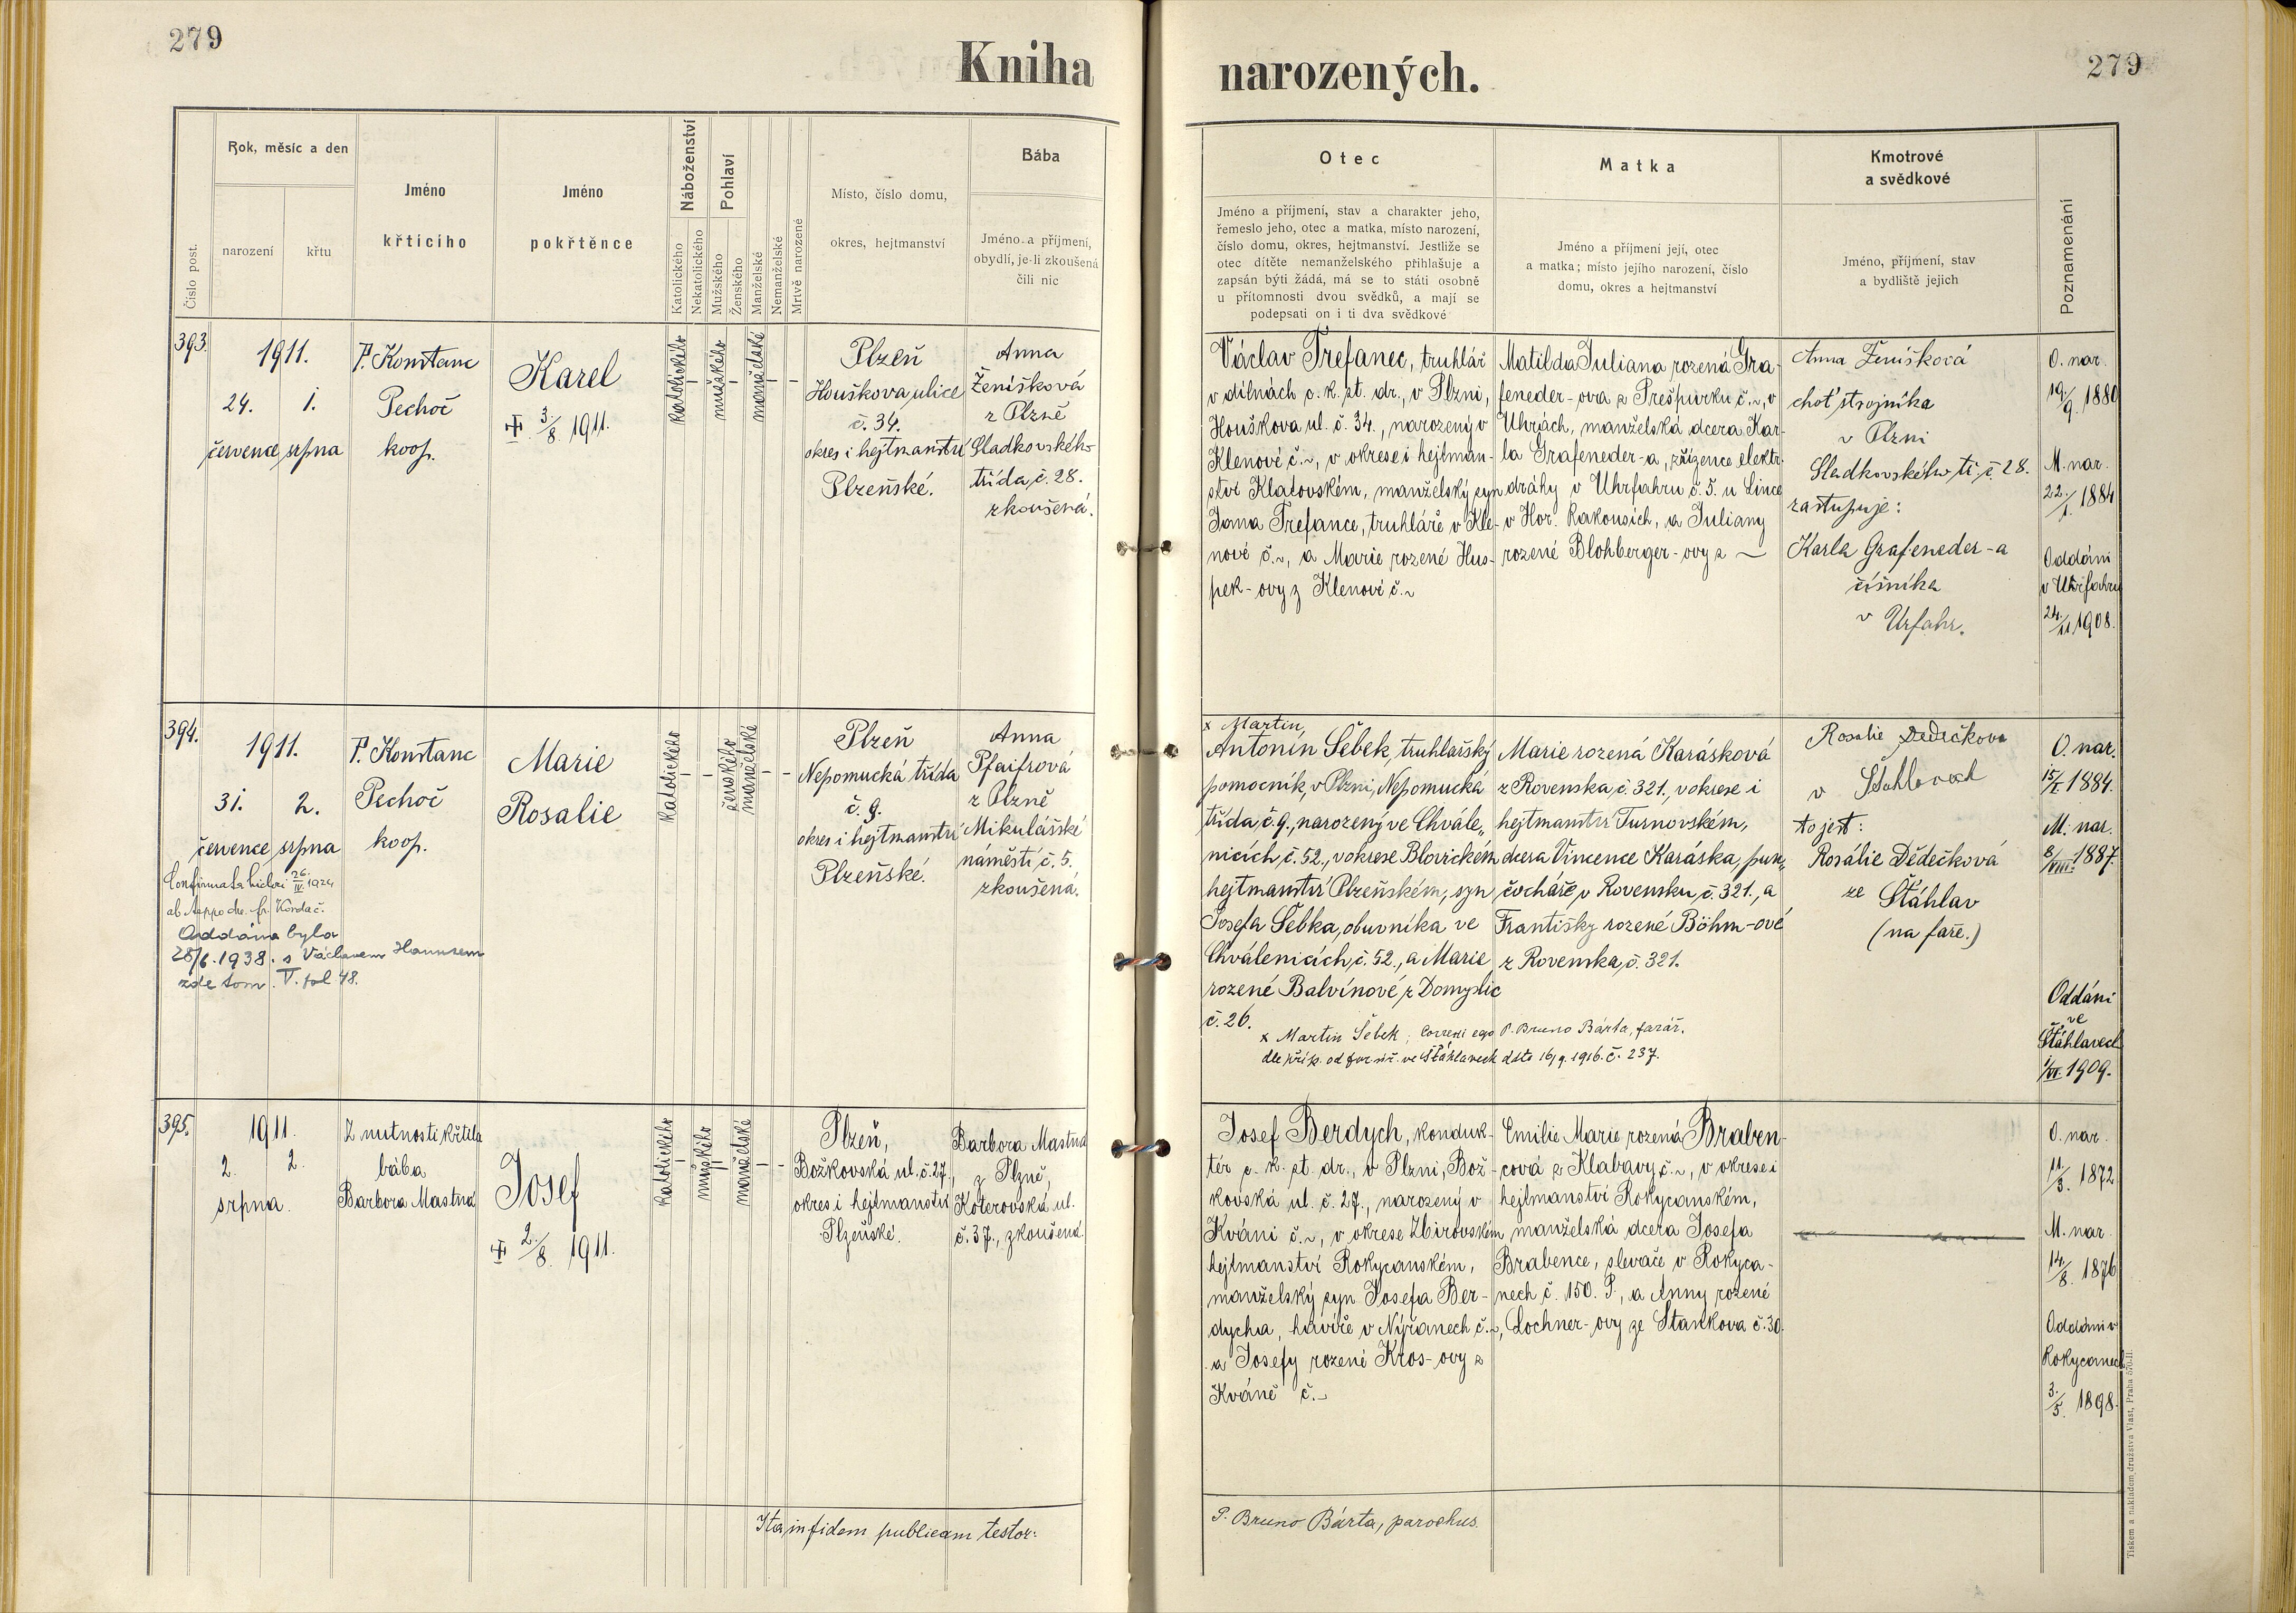 279
Kniha
narozených.
279
Rok, měsíc a den
narození
křtu
Číslo post.
Jméno
křticího
Jméno
pokřtěnce
Náboženství
Katolického
Nekatolického
Pohlaví
Mužského
Ženského
Manželské
Nemanželské
Mrtvě narozené
Místo, číslo domu,
okres, hejtmanství
Bába
Jméno a příjmení,
obydlí, je-li zkoušená
čili nic
Otec
Jméno a příjmení, stav a charakter jeho,
řemeslo jeho, otec a matka, místo narození,
číslo domu, okres, hejtmanství. Jestliže se
otec dítěte nemanželského přihlašuje a
zapsán býti žádá, má se to státi osobně
u přítomnosti dvou svědků, a mají se
podepsati on i ti dva svědkové
Matka
Jméno a příjmení její, otec
a matka; místo jejího narození, číslo
domu, okres a hejtmanství
Kmotrové
a svědkové
Jméno, příjmení, stav
a bydliště jejich
Poznamenání
393.
1911.
24. 1.
července srpna
P. Konstanc
Pechoč
koop.
Karel
3./8. 1911.
katolického
mužského
manželské
Plzeň
Houškova ulice
č. 34.
okres i hejtmanství
Plzeňské.
Anna
Ženíšková
z Plzně
Sladkovského
třída č. 28.
zkoušená.
Václav Trefanec, truhlář
v dílnách c. k. st. dr., v Plzni,
Houškova ul. č. 34., narozený v
Klenové č. ~, v okrese i hejtman-
ství Klatovském, manželský syn
Jana Trefance, truhláře v Kle-
nové č. ~, a Marie rozené Hus-
pek-ovy z Klenové č. ~
Matilda Juliana rozená Gra-
feneder-ova z Prešpurku č. ~, v
Uhrách, manželská dcera Kar-
la Grafeneder-a, zřízence elektr.
dráhy v Uhrfahru č. 5. u Lince
v Hor. Rakousích, a Juliany
rozené Blohberger-ovy z ~
Anna Ženíšková
choť strojníka
v Plzni
Sladkovského tř. č. 28.
zastupuje:
Karla Grafeneder-a
číšníka
v Urfahr.
O. nar.
19./9. 1880
M. nar.
22./1. 1884
Oddáni
v Uhrfahru
24./11. 1908.
394.
1911.
31. 2.
července srpna
P. Konstanc
Pechoč
koop.
Marie
Rosalie
katolického
ženského
manželské
Plzeň
Nepomucká třída
č. 9.
okres i hejtmanství
Plzeňské.
Anna
Pfaifrová
z Plzně
Mikulášské
náměstí, č. 5.
zkoušená.
26./IV. 1924
Fr. Kordač.
Oddána byla
28/6. 1938. s Václavem Hanusem
zde tom. V. fol 48.
x Martin
Antonín Šebek, truhlářský
pomocník, v Plzni, Nepomucká
třída, č. 9., narozený ve Chvále„
nicích č. 52., v okrese Blovickém
hejtmanství Plzeňském, syn
Josefa Šebka, obuvníka ve
Chválenicích, č. 52., a Marie
rozené Balvínové, z Domyslic
č. 26.
x Martin Šebek; correxi ego P. Bruno Bárta, farář.
dle příp. od far. úř. ve Šťáhlavech ddto 16/9. 1916. č. 237.
Marie rozená Karásková
z Rovenska č. 321., v okrese i
hejtmanství Turnovském,
dcera Vincence Karáska, pun„
čocháře v Rovensku, č. 321., a
Františky rozené Böhm-ové
z Rovenska, č. 321.
Rosalie Dědečkova
v Šťáhlavech
to jest:
Rosálie Dědečková
ze Šťáhlav
(na faře.)
O. nar.
15/I. 1884.
M. nar.
8/VIII. 1887.
Oddáni
ve
Šťáhlavech
1/VI. 1909.
395.
1911.
2. 2.
srpna.
Z nutnosti křtila
bába
Barbora Mastná
Josef
2./8. 1911.
katolického
mužského
manželské
Plzeň,
Božkovská ul. č. 27,
okres i hejtmanství
Plzeňské.
Barbora Mastná
z Plzně,
Koterovská ul.
č. 37., zkoušená.
Josef Berdych, konduk-
tér c. k. st. dr., v Plzni, Bož-
kovská ul. č. 27., narozený v
Kváni č. ~, v okrese Zbirovském
hejtmanství Rokycanském,
manželský syn Josefa Ber-
dycha, havíře v Nýřanech č. ~,
a Josefy rozené Kros-ovy z
Kváně č. ~
Emilie Marie rozená Braben-
cová z Klabavy č. ~, v okrese i
hejtmanství Rokycanském,
manželská dcera Josefa
Brabence, slevače v Rokyca-
nech č. 150. P., a Anny rozené
Lochner-ovy ze Staňkova č. 30.
O. nar.
11./3. 1872
M. nar.
14./8. 1876
Oddáni v
Rokycanech
3./5. 1898.
Ita in fidem publicam testor:
P. Bruno Bárta, parochus.
Tiskem a nakladem družstva Vlast, Praha 570-II.